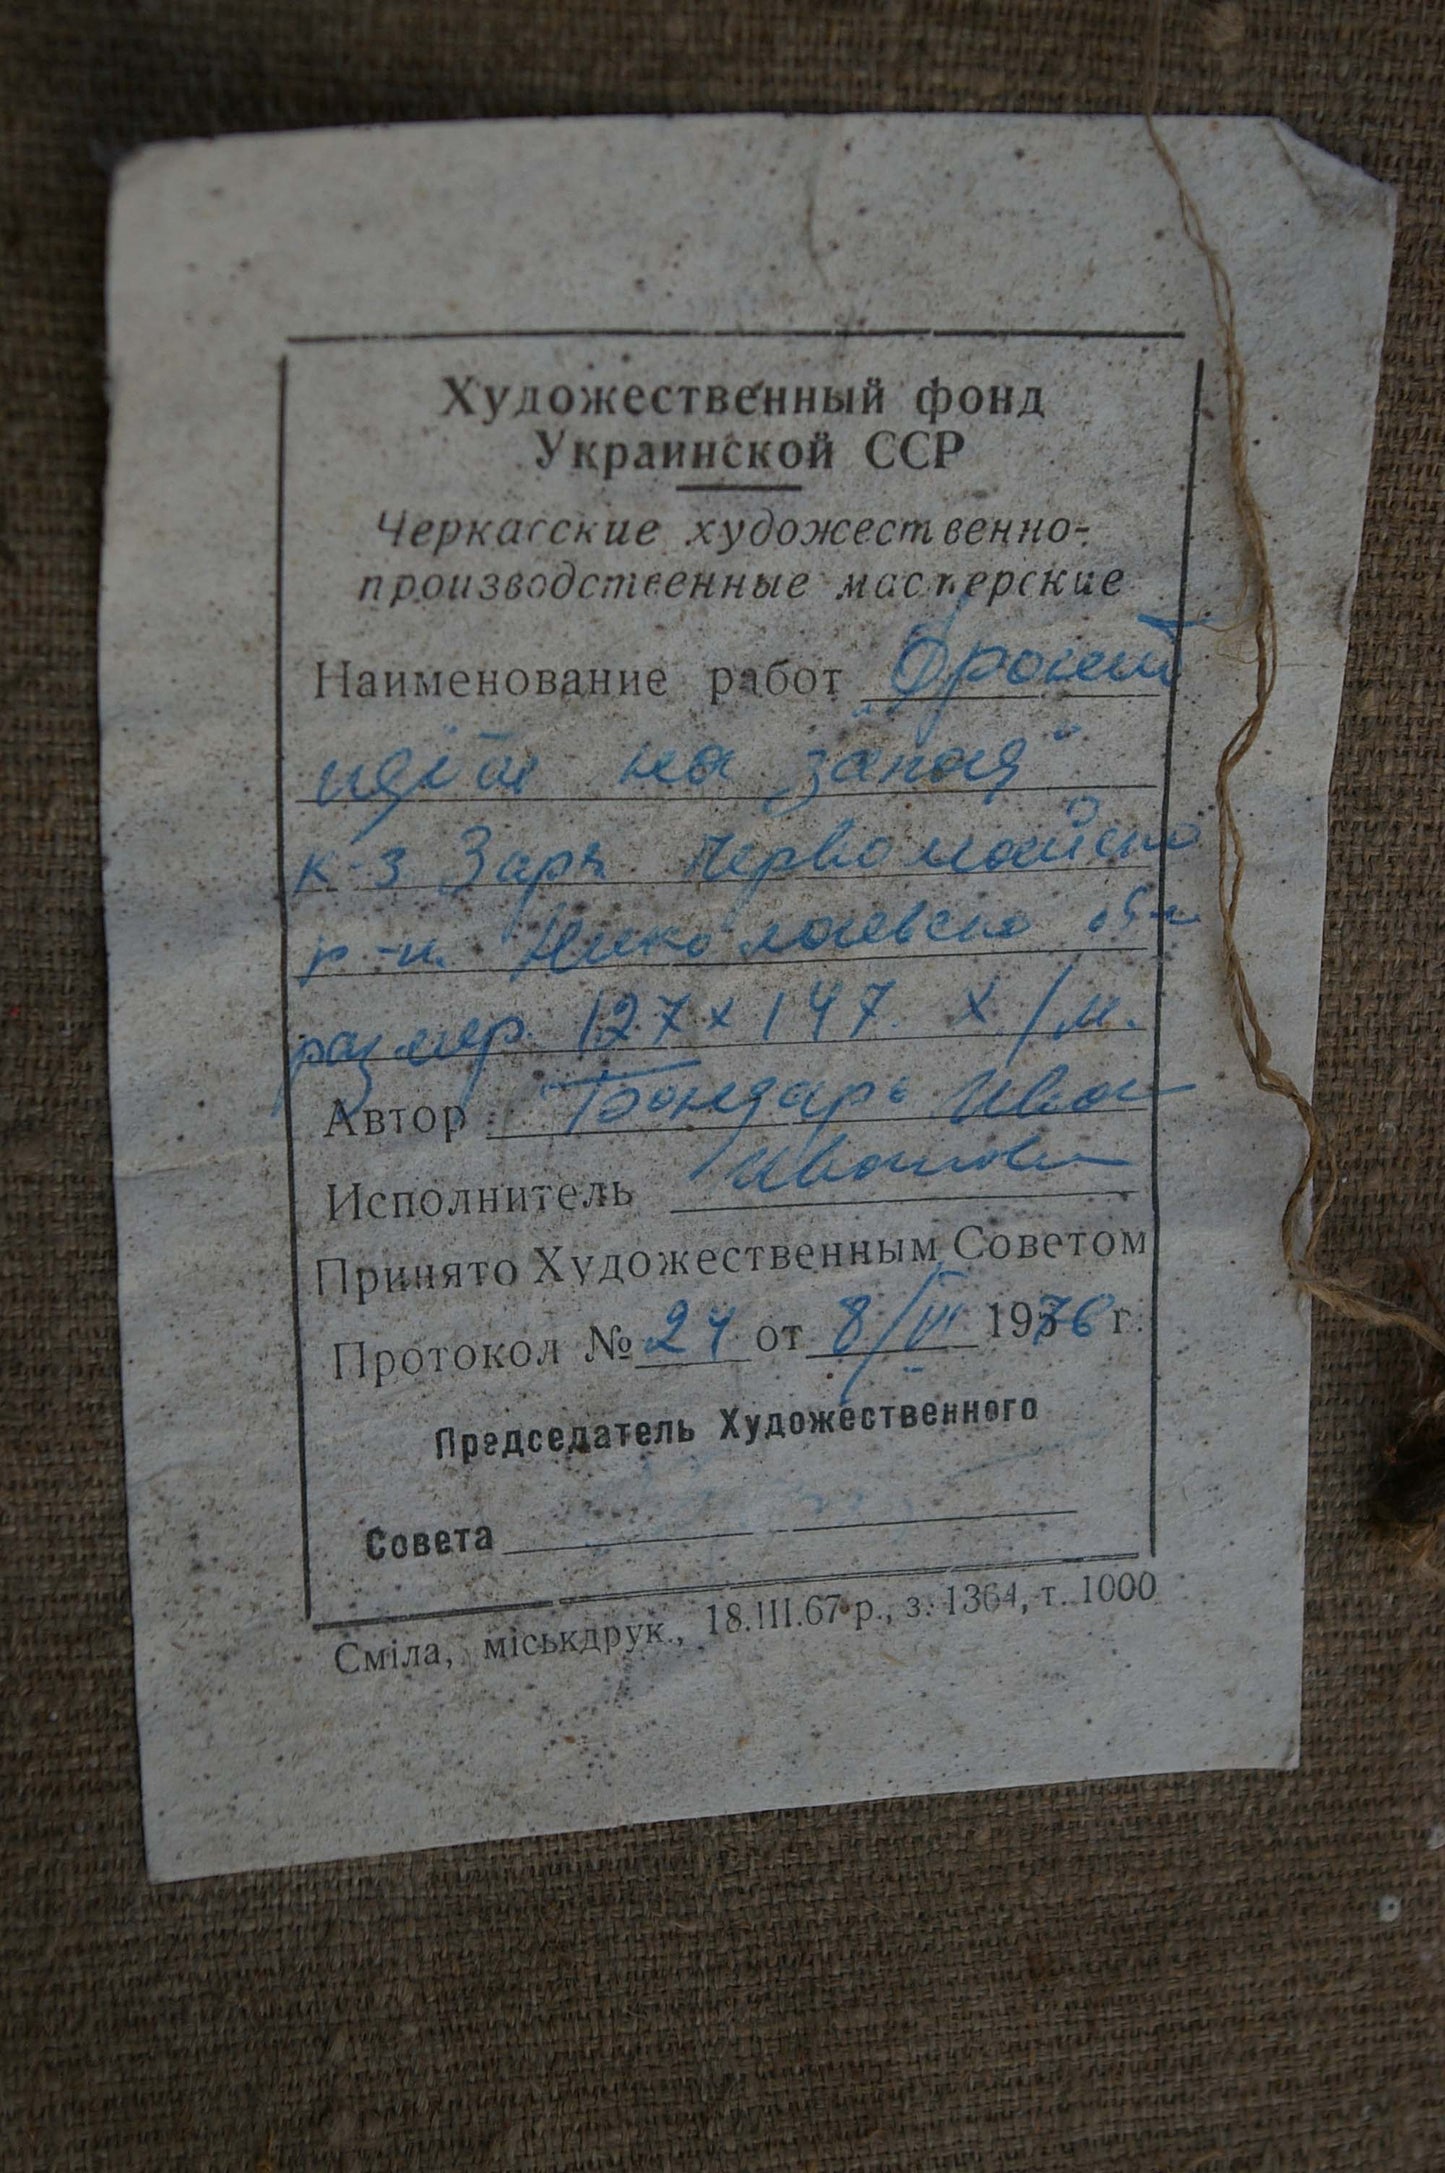 Художественный фонд
Украинской ССР
Черкасские художественно-
производственные мастерские
Наименование работ „Фронт
идёт на запад“
к-з Заря Первомайско
р-н. Николаевско об-и
размер. 127х147. х/м.
Автор Бондарь Иван
Исполнитель Иванови
Принято Художественным Советом
Протокол № 24 от 8/VI 1976 г.
Председатель Художественного
Совета
Сміла, міськдрук., 18.III.67 р., з. 1364, т. 1000